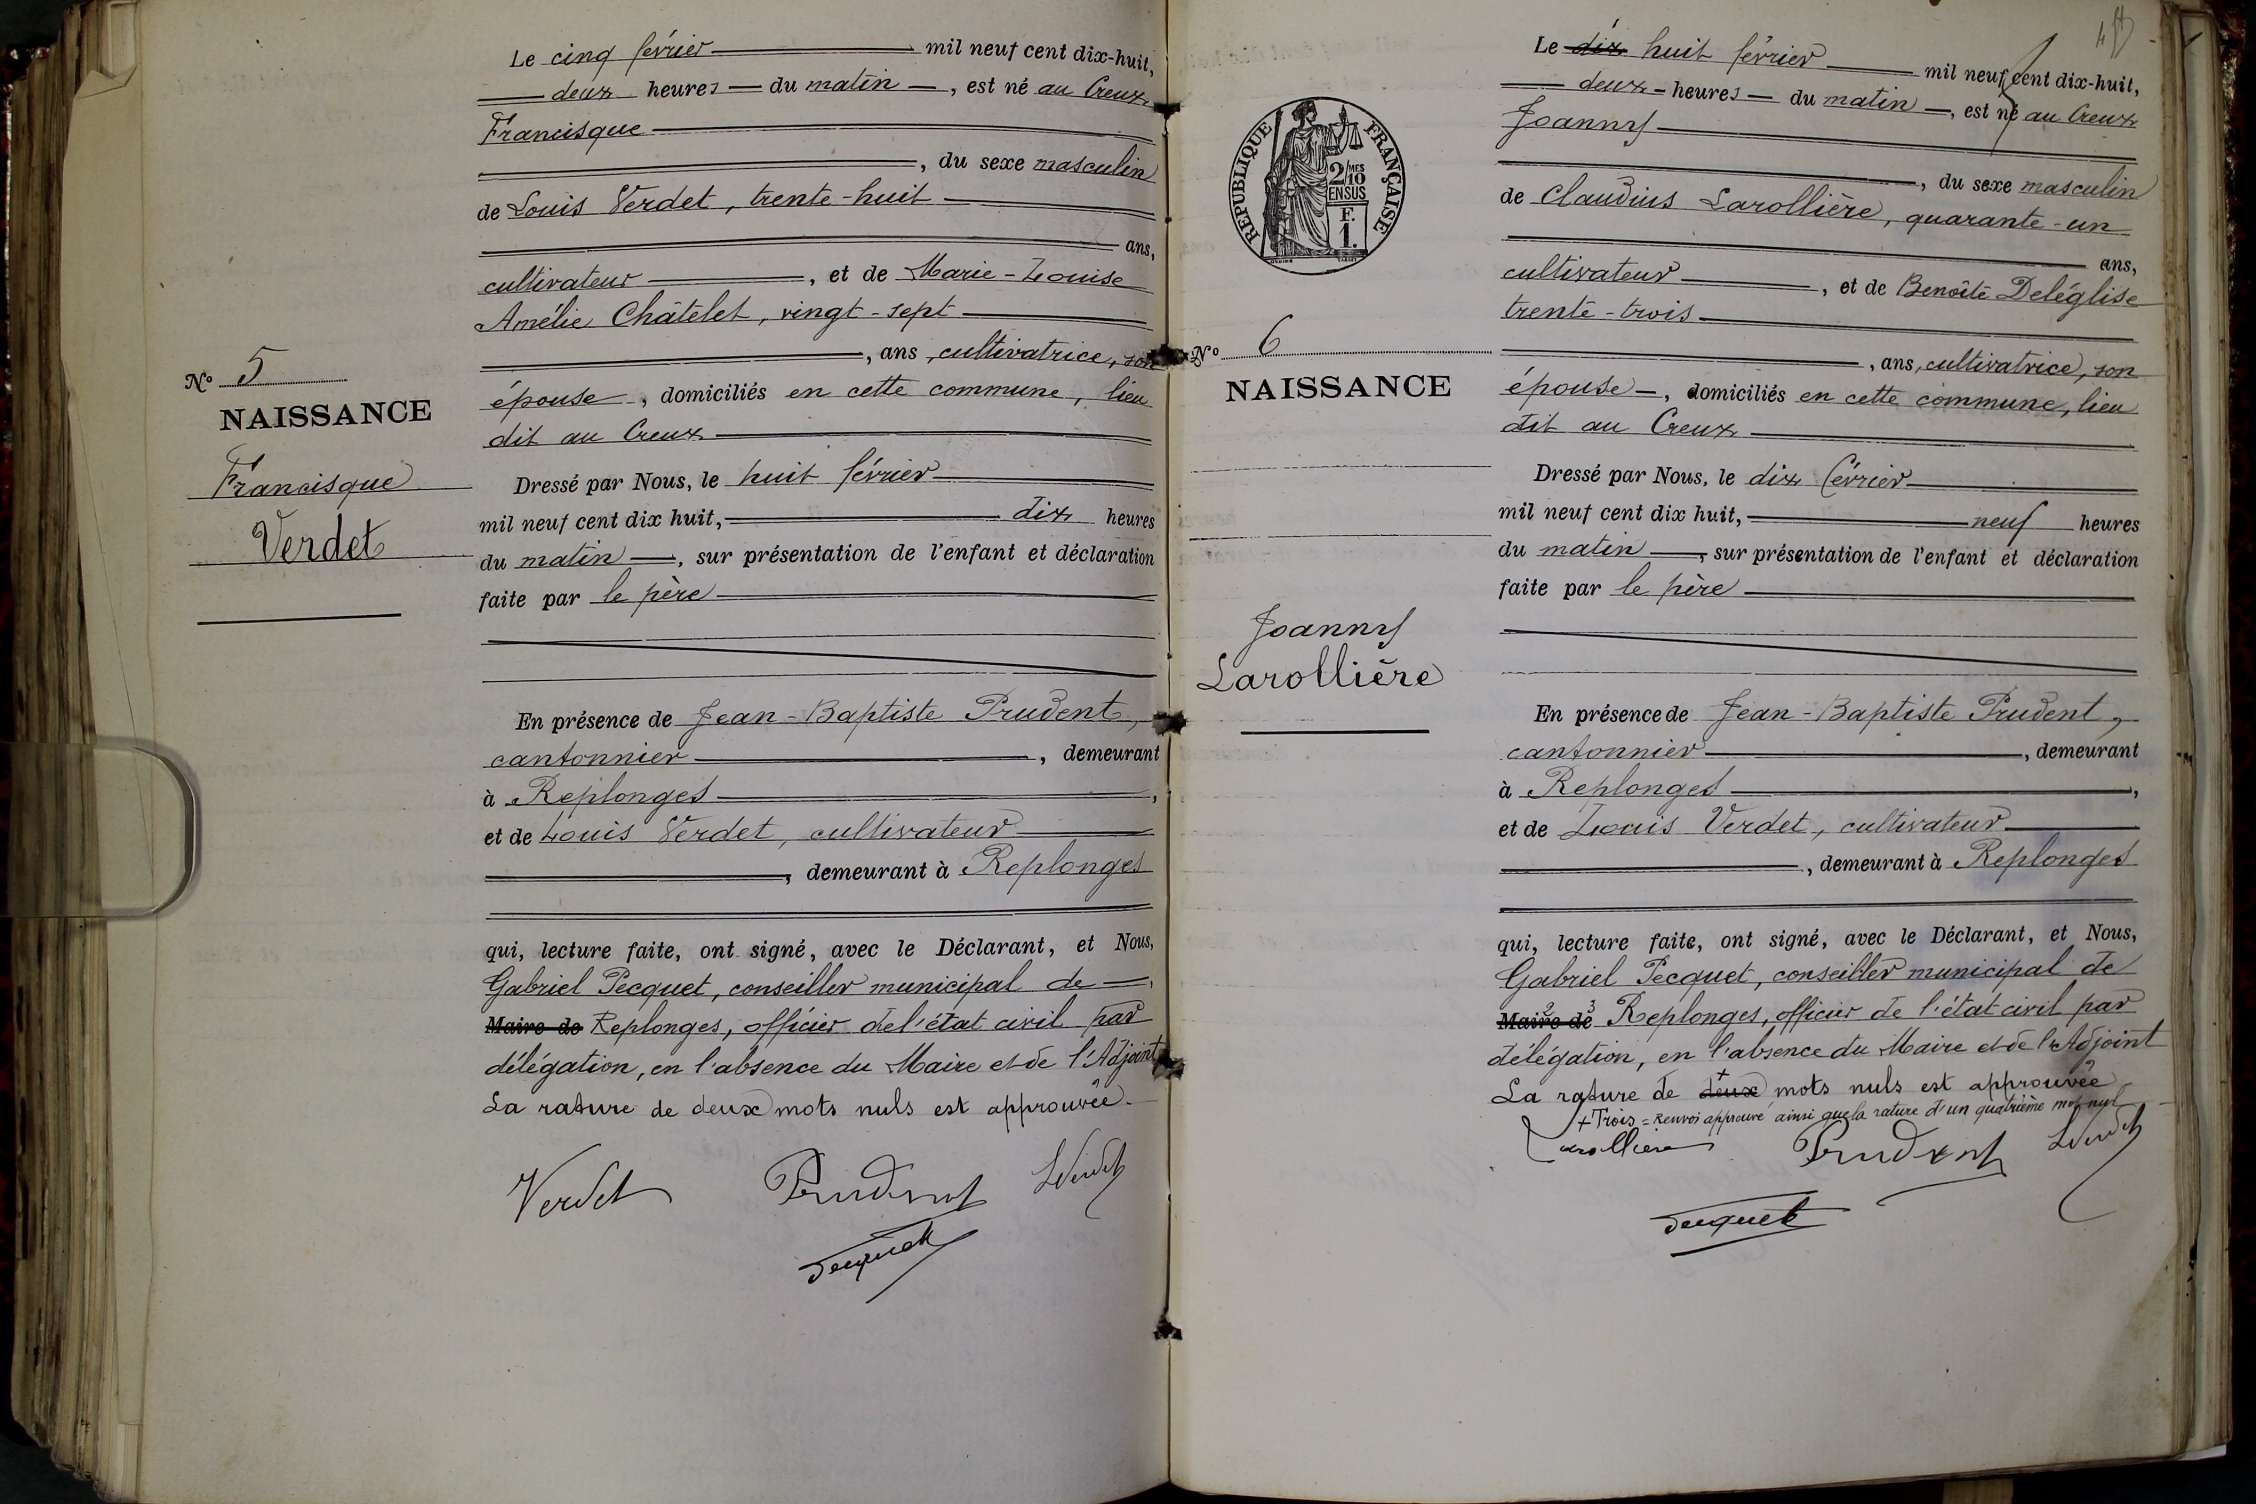 Le cinq février mil neuf cent dix-huit,
deux heures du matin, est né au Creux
Francisque
, du sexe masculin
de Louis Verdet, trente-huit
ans,
cultivateur, et de Marie-Louise
Amélie Châtelet, vingt-sept
, ans, cultivatrice, son
épouse, domiciliés en cette commune, lieu
dit au Creux
Nº 5
NAISSANCE
Francisque
Verdet
Dressé par Nous, le huit février
mil neuf cent dix huit, dix heures
du matin, sur présentation de l'enfant et déclaration
faite par le père
En présence de Jean-Baptiste Prudent,
cantonnier, demeurant
à Replonges,
et de Louis Verdet, cultivateur
, demeurant à Replonges
qui, lecture faite, ont signé, avec le Déclarant, et Nous,
Gabriel Pecquet, conseiller municipal de
Maire de Replonges, officier de l'état civil par
délégation, en l'absence du Maire et de l'Adjoint
La rature de deux mots nuls est approuvée.
Verdet Prudent LVerdet
Pecquet
Le dix huit février mil neuf cent dix-huit,
deux heures du matin, est né au Creux
Joanny
, du sexe masculin
de Claudius Larollière, quarante-un
ans,
cultivateur, et de Benoîte Deléglise
trente-trois
, ans, cultivatrice, son
épouse, domiciliés en cette commune, lieu
dit au Creux
RÉPUBLIQUE FRANÇAISE
2/10 MES
EN SUS
F.
1.
Nº 6
NAISSANCE
Joanny
Larollière
Dressé par Nous, le dix février
mil neuf cent dix huit, neuf heures
du matin, sur présentation de l'enfant et déclaration
faite par le père
En présence de Jean-Baptiste Prudent,
cantonnier, demeurant
à Replonges,
et de Louis Verdet, cultivateur
, demeurant à Replonges
qui, lecture faite, ont signé, avec le Déclarant, et Nous,
Gabriel Pecquet, conseiller municipal de
Maire de Replonges, officier de l'état civil par
délégation, en l'absence du Maire et de l'Adjoint
La rature de deux + mots nuls est approuvée
+ Trois = Renvoi approuvé ainsi que la rature d'un quatrième mot nul
Larollière Prudent LVerdet
Pecquet